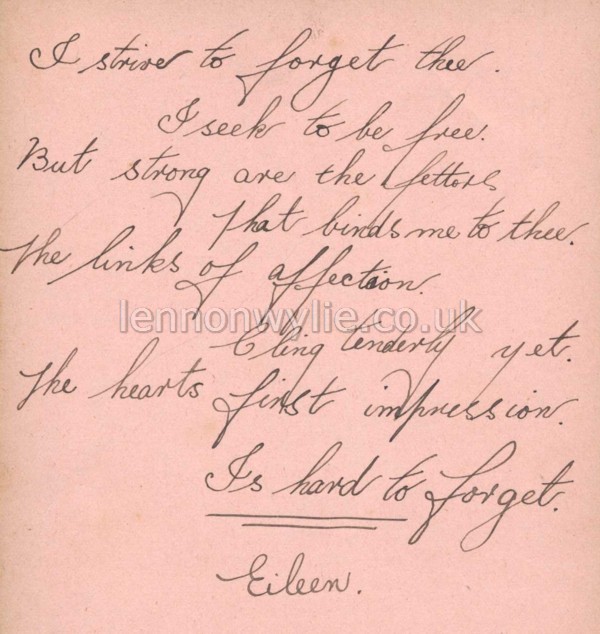 I strive to forget thee.
I seek to be free.
But strong are the fettors
That binds me to thee.
The links of affection.
lennonwylie.co.uk
Cling tenderly yet.
The hearts first impression.
Is hard to forget.
Eileen.